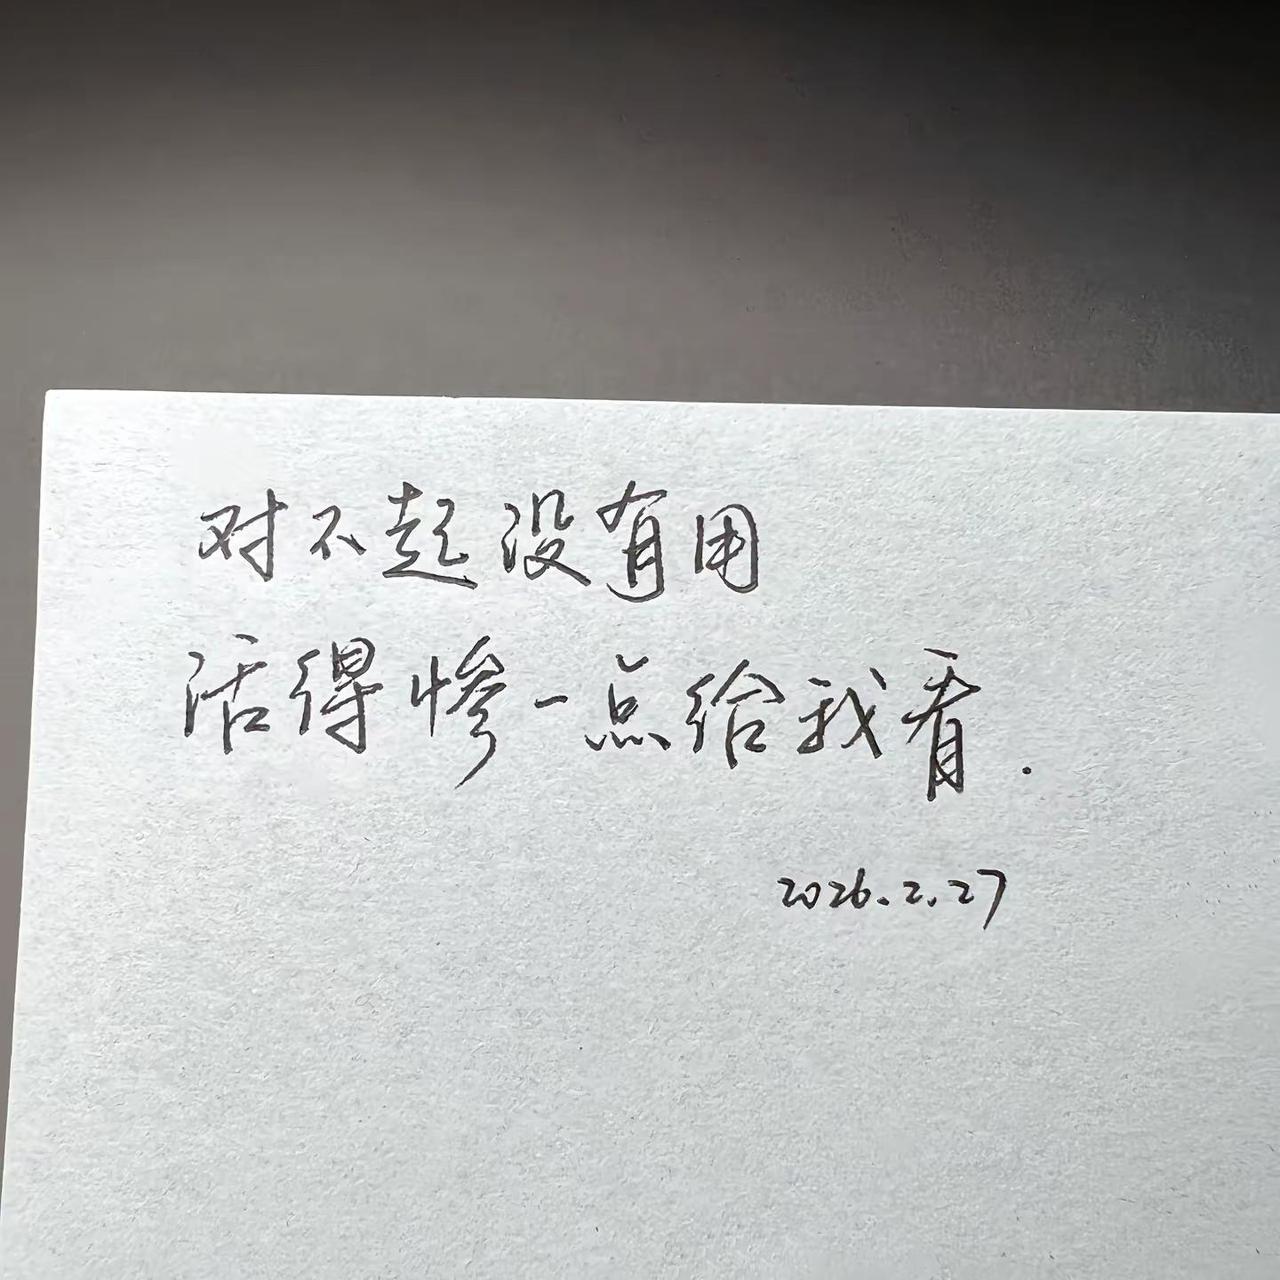 对不起没有用
活得惨一点给我看.
2026.2.27